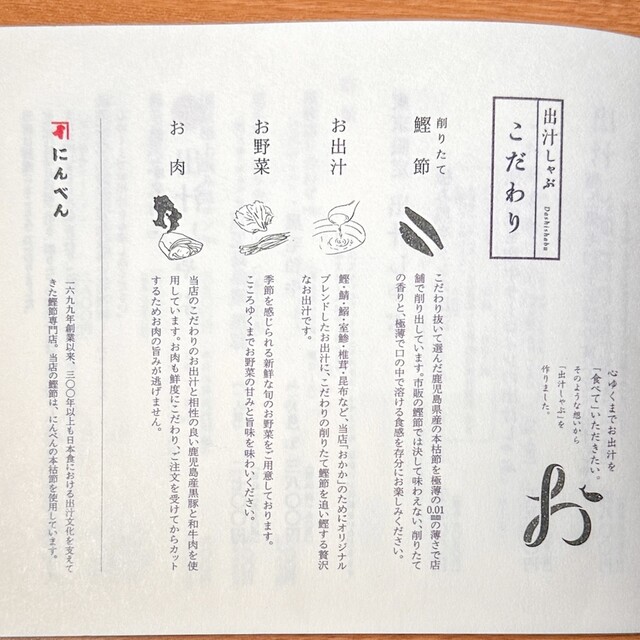 心ゆくまでお出汁を
「食べて」いただきたい。
そのような想いから
「出汁しゃぶ」を
作りました。
お
出汁しゃぶ Dashishabu
こだわり
削りたて
鰹節
こだわり抜いて選んだ鹿児島県産の本枯節を極薄の0.01㎜の薄さで店
舗で削り出しています。市販の鰹節では決して味わえない、削りたて
の香りと、極薄で口の中で溶ける食感を存分にお楽しみください。
お出汁
鰹・鯖・鰯・室鯵・椎茸・昆布など、当店「おかか」のためにオリジナル
ブレンドしたお出汁に、こだわりの削りたて鰹節を追い鰹する贅沢
なお出汁です。
お野菜
季節を感じられる新鮮な旬のお野菜をご用意しております。
こころゆくまでお野菜の甘みと旨味を味わいください。
お肉
当店のこだわりのお出汁と相性の良い鹿児島産黒豚と和牛肉を使
用しています。お肉も鮮度にこだわり、ご注文を受けてからカット
するためお肉の旨みが逃げません。
にんべん
一六九九年創業以来、三〇〇年以上も日本食における出汁文化を支えて
きた鰹節専門店。当店の鰹節は、にんべんの本枯節を使用しています。